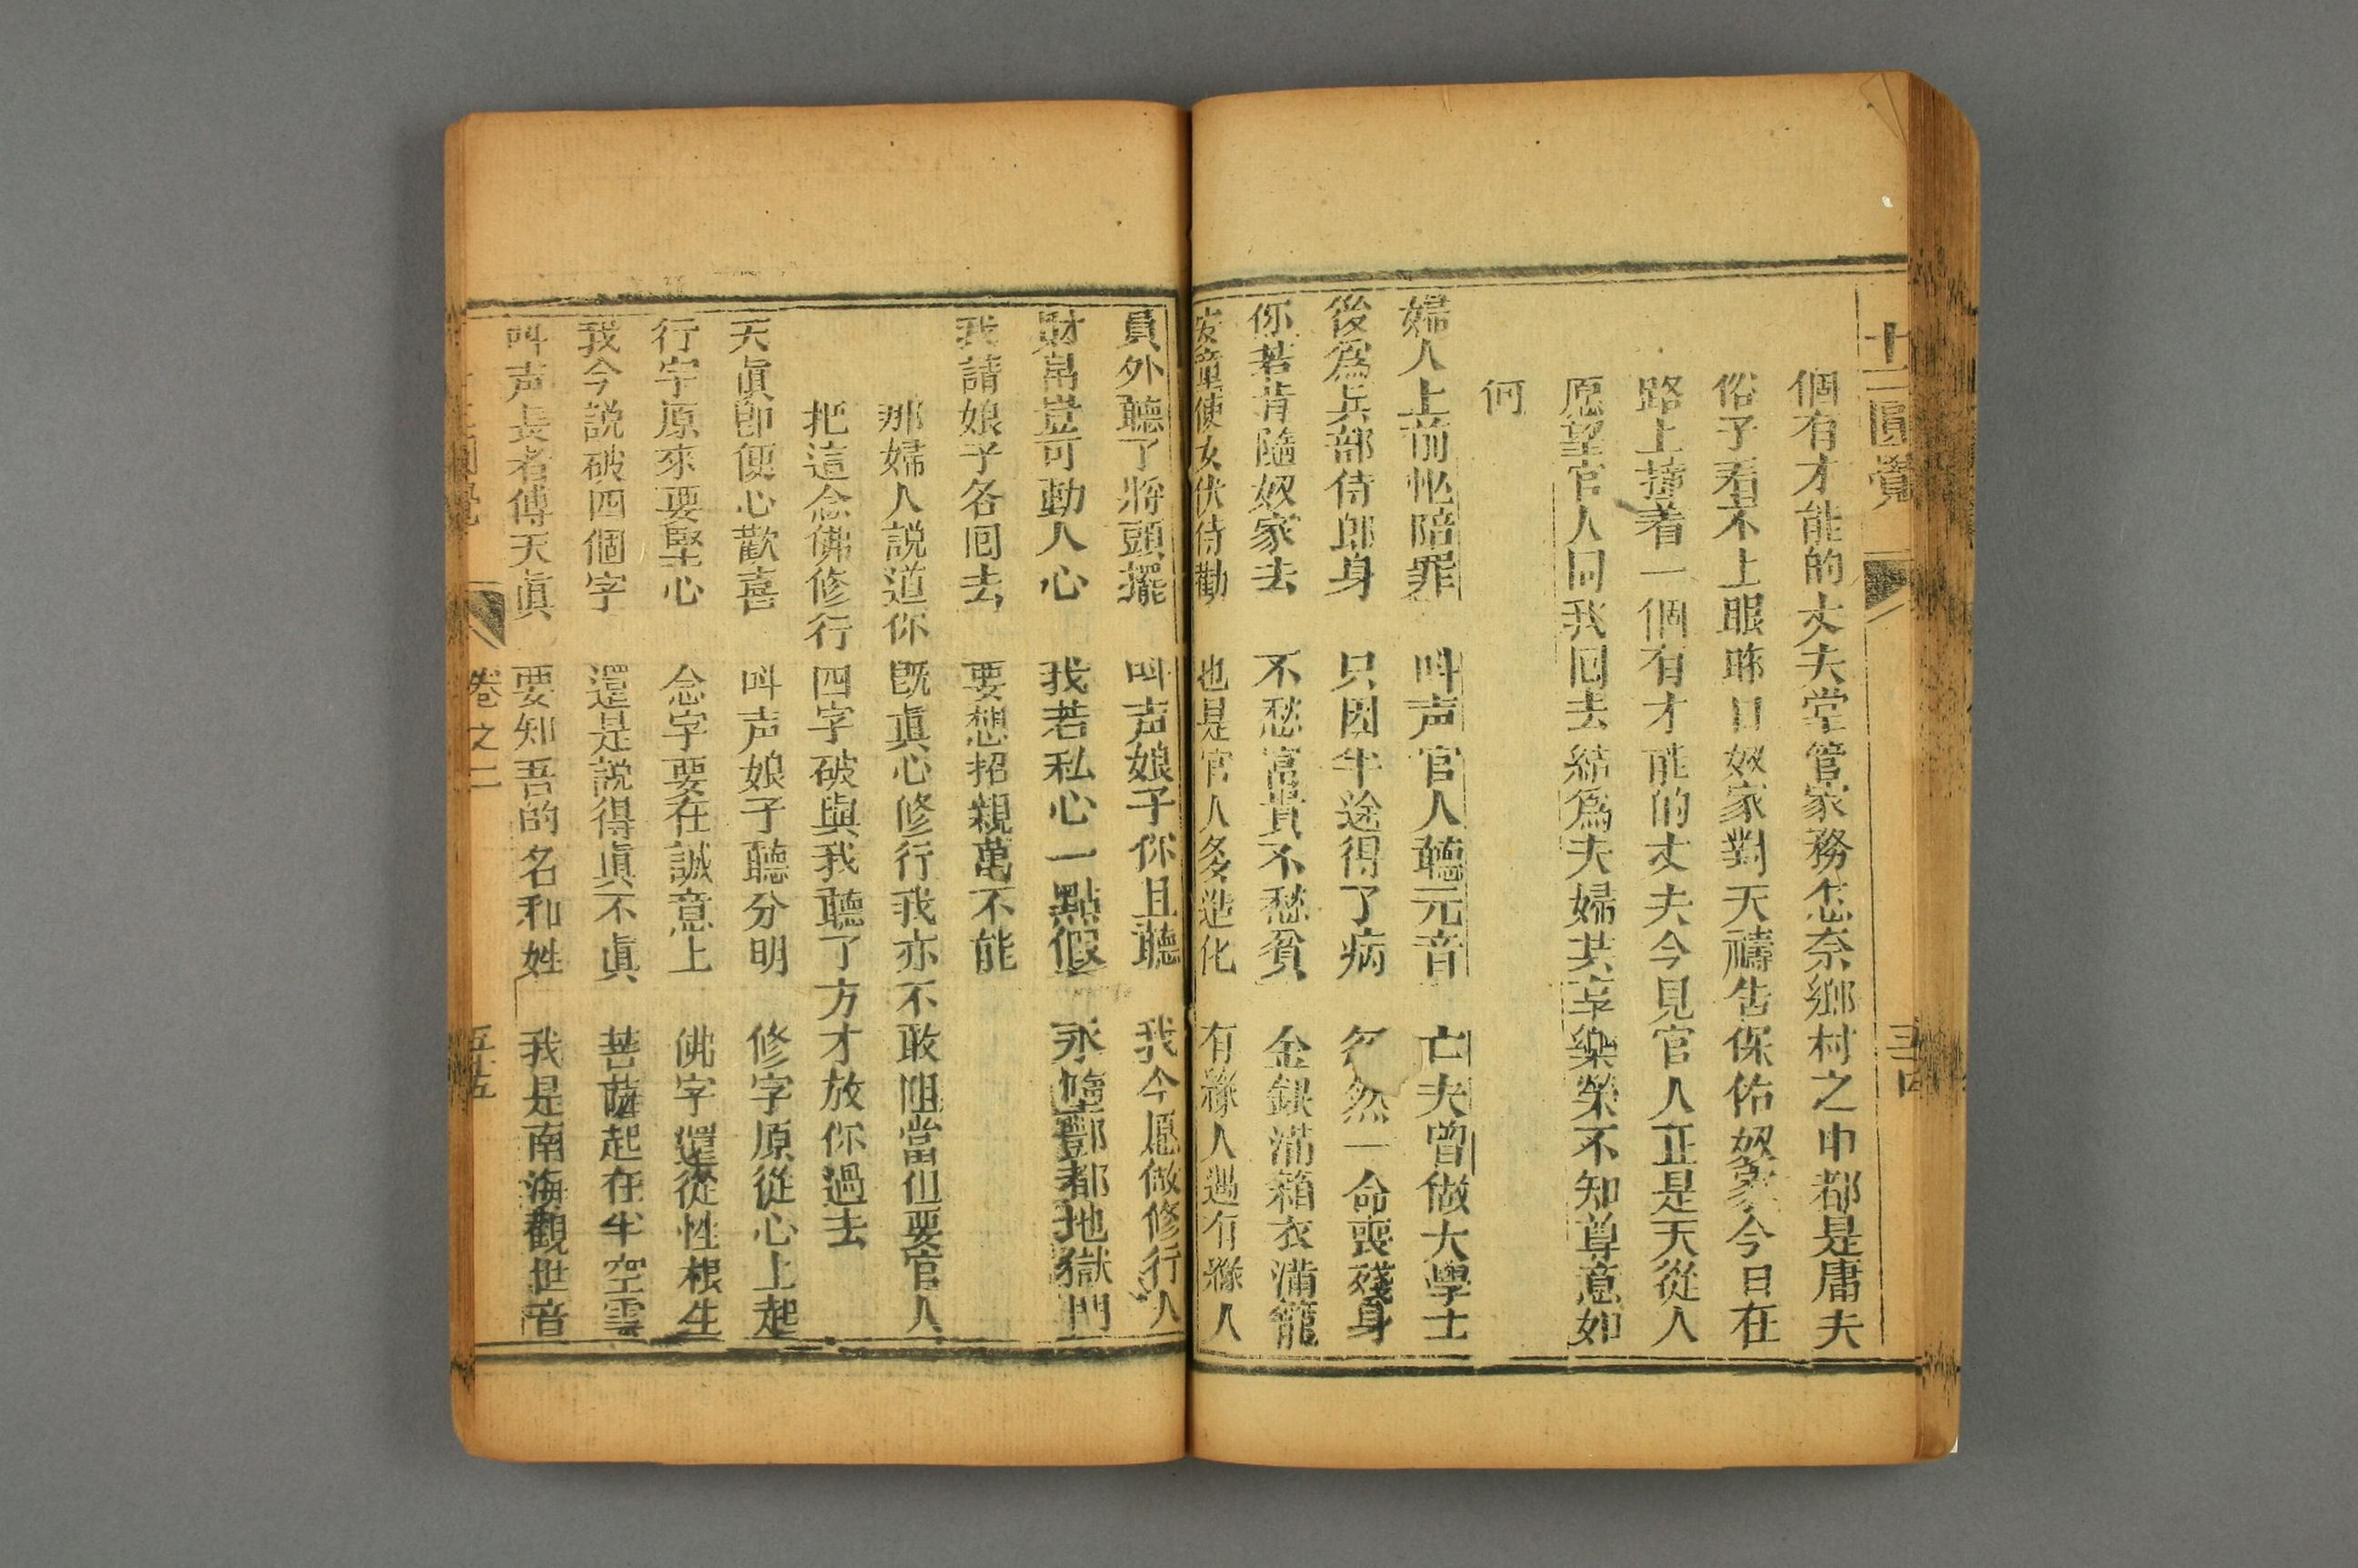 十二圓覺
個有才能的丈夫堂管家務怎奈鄉村之中都是庸夫
俗子看不上眼昨日奴家對天禱告保佑奴家今日在
路上撞着一個有才能的丈夫今見官人正是天從人
愿望官人同我囘去結爲夫婦共享樂榮不知尊意如
何
婦人上前忙陪罪 叫声官人聽元音 亡夫曾做大學士
後爲兵部侍郎身 只因半途得了病 忽然一命喪殘身
你若肯隨奴家去 不愁富貴不愁貧 金銀滿箱衣滿籠
安童使女伏侍勤 也是官人多造化 有緣人遇有緣人
員外聽了將頭擺 叫声娘子你且聽 我今愿做修行人
財帛豈可動人心 我若私心一點假 永墮酆都地獄門
我請娘子各囘去 要想招親萬不能
那婦人説道你既眞心修行我亦不敢阻當但要官人
把這念佛修行四字破與我聽了方才放你過去
天眞卽便心歡喜 叫声娘子聽分明 修字原從心上起
行字原來要堅心 念字要在誠意上 佛字還從性根生
我今説破四個字 還是説得眞不眞 菩薩起在半空雲
叫声長者傅天眞 要知吾的名和姓 我是南海觀世音
卷之二
五十五